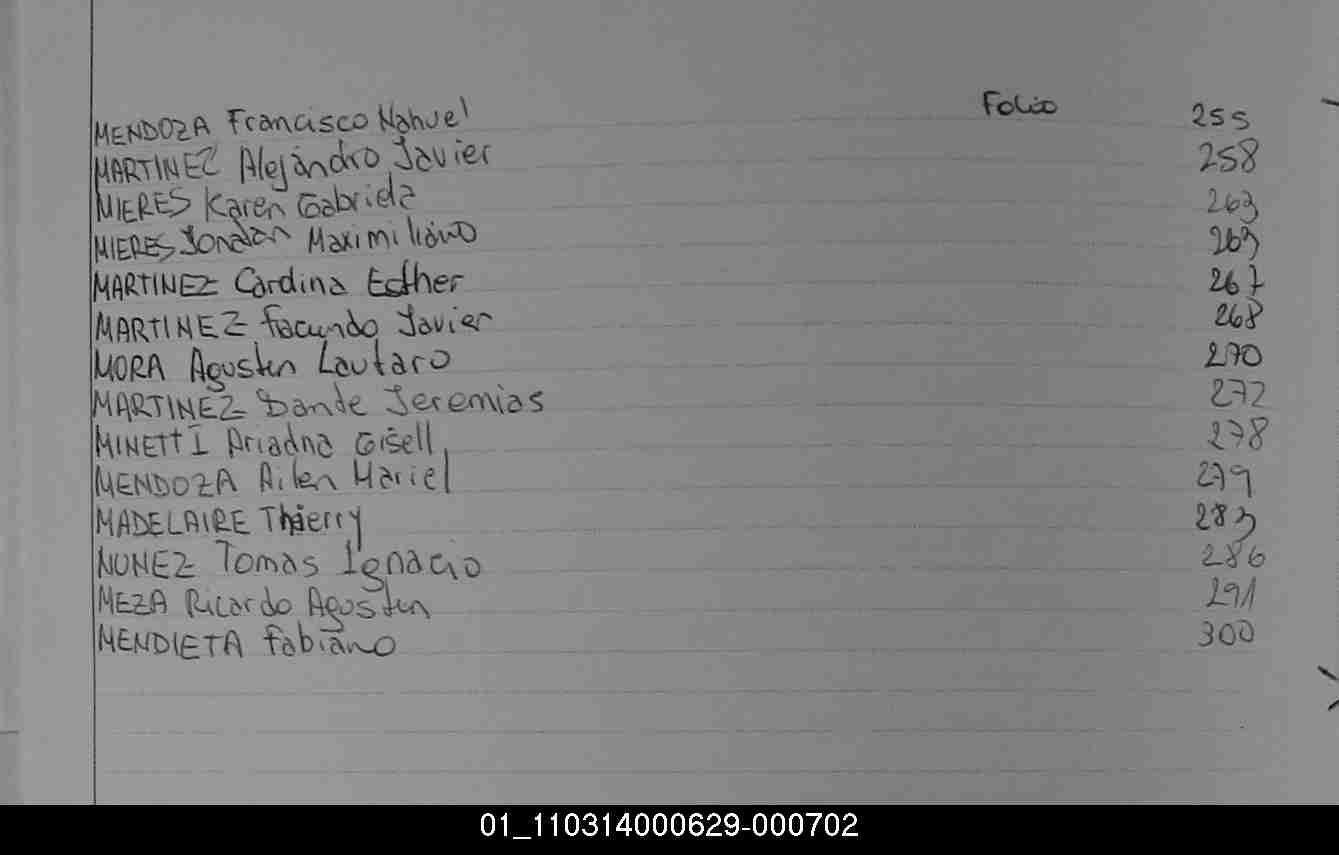 MENDOZA Francisco Nahuel Folio 255
MARTINEZ Alejandro Javier 258
MIERES Karen Gabriela 263
MIERES Jonatan Maximiliano 263
MARTINEZ Carolina Esther 267
MARTINEZ Facundo Javier 268
MORA Agustin Lautaro 270
MARTINEZ Dante Jeremias 272
MINETTI Ariadna Gisell 278
MENDOZA Ailen Mariel 279
MADELAIRE Thierry 283
NUNEZ Tomas Ignacio 286
MEZA Ricardo Agustin 291
MENDIETA Fabiano 300
01_110314000629-000702